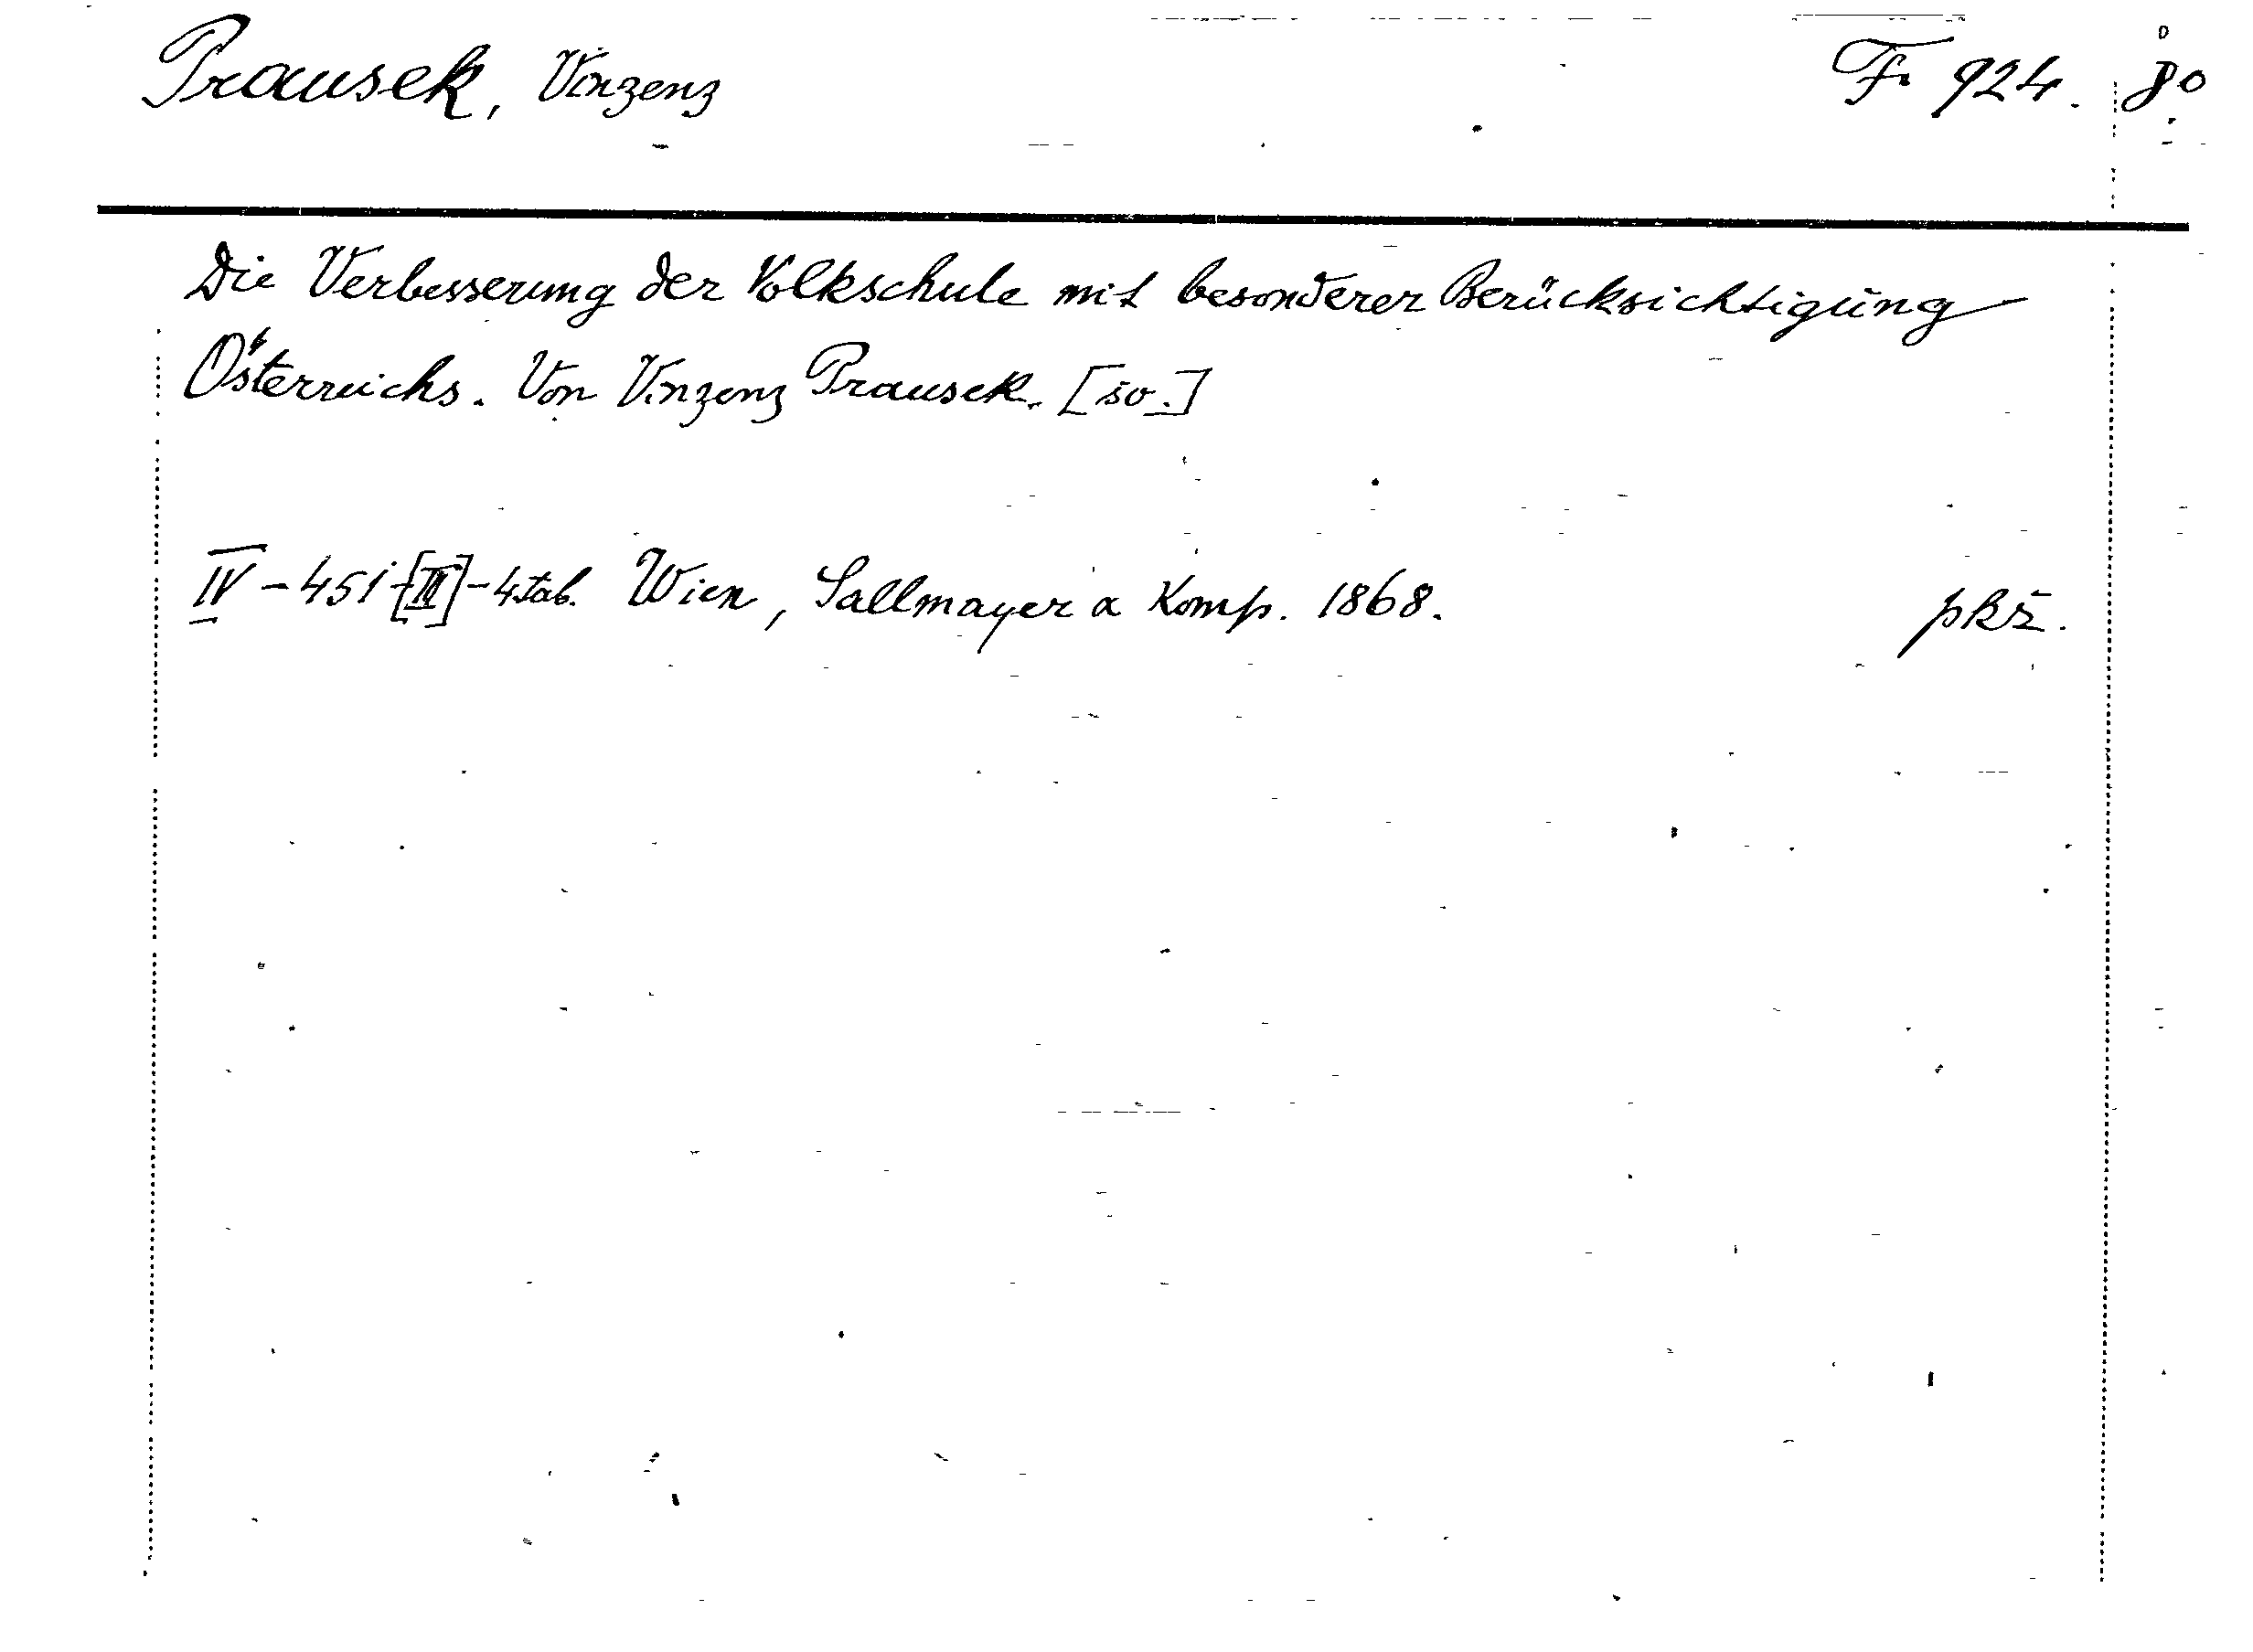 Prausek, Vinzenz F. 924. 8°
Die Verbesserung der Volkschule mit besonderer Berücksichtigung
Österreichs. Von Vinzenz Prausek. [so.]
IV-451-[III]-4tab. Wien, Sallmayer & Komp. 1868. pkž.